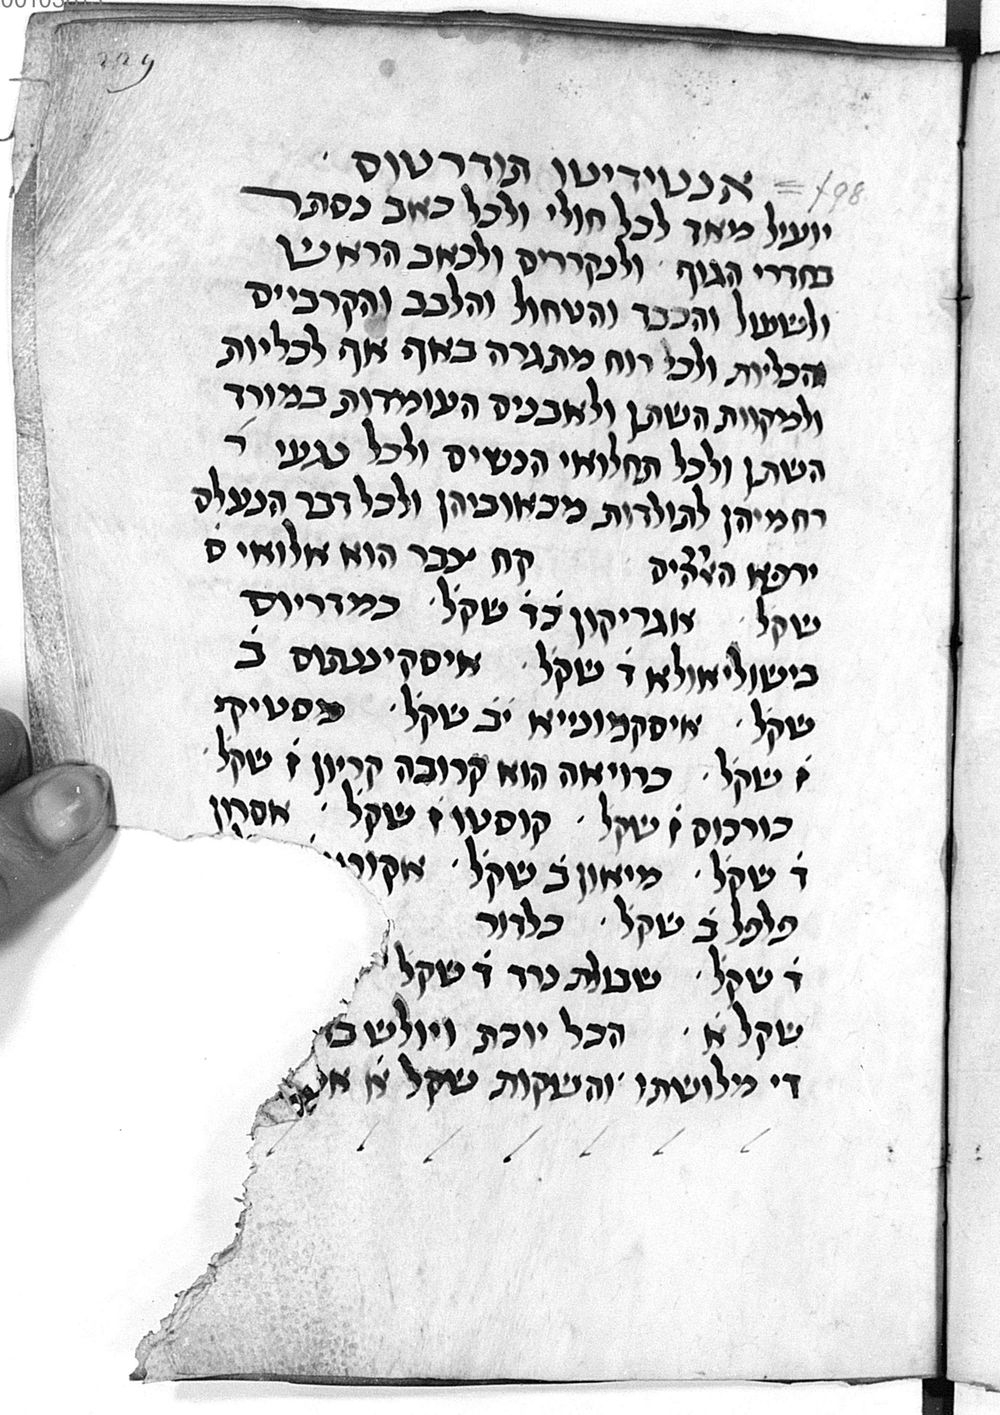 229
אנטידיטו תודרטוס ·
= f98
יועיל מאד לכל חולי ולכל כאב נסתר
בחדרי הגוף · ולנקרדיס ולכאב הראש
ולשעול והכבד והטחול והלבב והקרביים
והכליות ולכל רוח מתגרה באף אף לכליות
ולמקוות השתן ולאבנים העומדות במורד
השתן ולכל תחלואי הנשים ולכל נגעי ר
רחמיהן לתולדות מכאוביהן ולכל דבר הנעלם
ירפא קח צבר הוא אלואי ס
שקל אוגריקון כ̇ד̇ שקל · כמדריוס
בישולי אולא ד̇ שקל · ב̇
שקל · איסקמונייא י̇ב̇ שקל · מסטיקי
ז̇ שקל · כרויאה הוא קרובה קריון ז̇ שקל ·
כורכוס ז̇ שקל · קוסטו ז̇ שקל · אסרון
ד̇ שקל · מיאון ב̇ שקל ·
פלפל ב̇ שקל ·
ד̇ שקל · שבולת נרד ד̇ שקל
שקל א̇ · הכל יוכת ויולש
די מלושתו והשקות שקל א̇